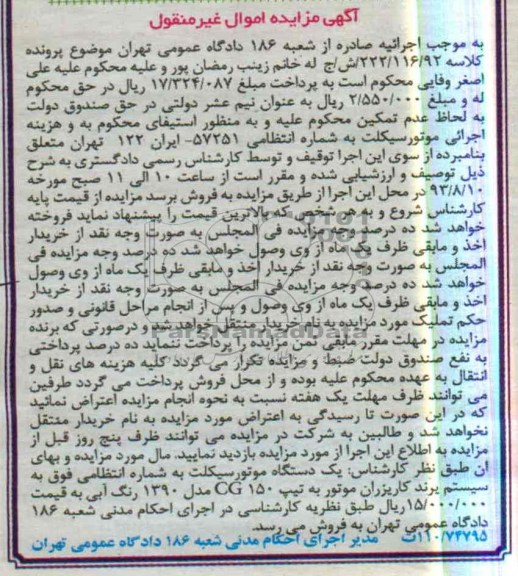 آگهی مزایده اموال غیرمنقول
به موجب اجرائیه صادره از شعبه ۱۸۶ دادگاه عمومی تهران موضوع پرونده
کلاسه ۲۲۲/۱۱۶/۹۲/ش/ج له خانم زینب رمضان پور و علیه محکوم علیه علی
اصغر وفایی محکوم است به پرداخت مبلغ ۱۷/۳۲۴/۰۸۷ ریال در حق محکوم
له و مبلغ ۲/۵۵۰/۰۰۰ ریال به عنوان نیم عشر دولتی در حق صندوق دولت
به لحاظ عدم تمکین محکوم علیه و به منظور استیفای محکوم به و هزینه
اجرائی موتورسیکلت به شماره انتظامی ۵۷۲۵۱- ایران ۱۲۲ تهران متعلق
بنامبرده از سوی این اجرا توقیف و توسط کارشناس رسمی دادگستری به شرح
ذیل توصیف و ارزشیابی شده و مقرر است از ساعت ۱۰ الی ۱۱ صبح مورخه
۹۳/۸/۱۰ در محل این اجرا از طریق مزایده به فروش برسد مزایده از قیمت پایه
کارشناس شروع و به هر شخصی که بالاترین قیمت را پیشنهاد نماید فروخته
خواهد شد ده درصد وجه مزایده فی المجلس به صورت وجه نقد از خریدار
اخذ و مابقی ظرف یک ماه از وی وصول خواهد شد ده درصد وجه مزایده فی
المجلس به صورت وجه نقد از خریدار اخذ و مابقی ظرف یک ماه از وی وصول
خواهد شد. ده درصد وجه مزایده فی المجلس به صورت وجه نقد از خریدار
اخذ و مابقی ظرف یک ماه از وی وصول و پس از انجام مراحل قانونی و صدور
حکم تملیک مورد مزایده به نام خریدار منتقل خواهد شد و درصورتی که برنده
مزایده در مهلت مقرر مابقی ثمن مزایده را پرداخت ننماید ده درصد پرداختی
به نفع صندوق دولت ضبط و مزایده تکرار می گردد کلیه هزینه های نقل و
انتقال به عهده محکوم علیه بوده و از محل فروش پرداخت می گردد طرفین
می توانند ظرف مهلت یک هفته نسبت به نحوه انجام مزایده اعتراض نمائید
که در این صورت تا رسیدگی به اعتراض مورد مزایده به نام خریدار منتقل
نخواهد شد و طالبین به شرکت در مزایده می توانند ظرف پنج روز قبل از
مزایده به اطلاع این اجرا از مورد مزایده بازدید نمایید. مال مورد مزایده و بهای
آن طبق نظر کارشناس: یک دستگاه موتورسیکلت به شماره انتظامی فوق به
سیستم برند کاریزران موتور به تیپ CG ۱۵۰ مدل ۱۳۹۰ رنگ آبی به قیمت
۱۵/۰۰۰/۰۰۰ریال طبق نظریه کارشناسی در اجرای احکام مدنی شعبه ۱۸۶
دادگاه عمومی تهران به فروش می رسد.
۱۱۰/۷۴۷۹۵ت مدیر اجرای احکام مدنی شعبه ۱۸۶ دادگاه عمومی تهران